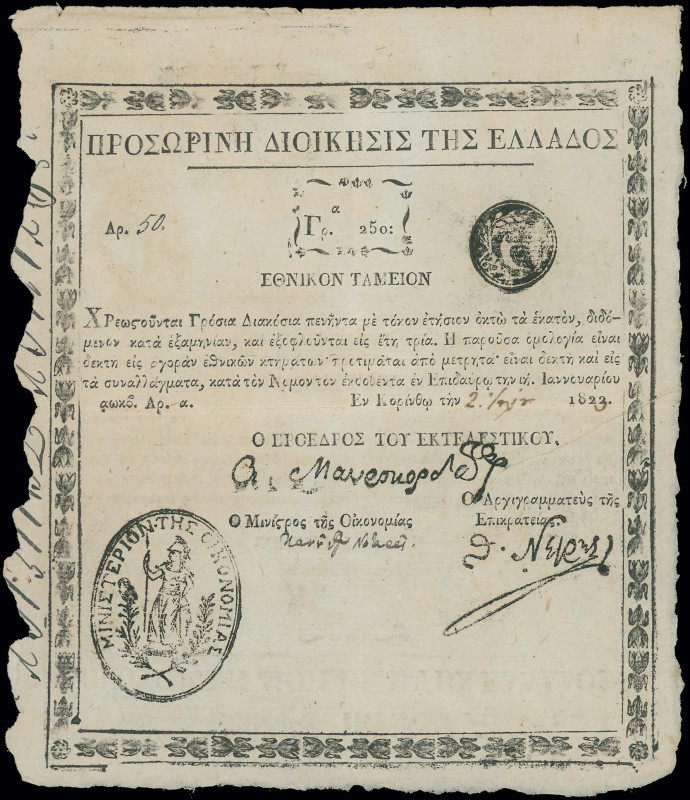 ΠΡΟΣΩΡΙΝΗ ΔΙΟΙΚΗΣΙΣ ΤΗΣ ΕΛΛΑΔΟΣ
Αρ. 50.
α
Γρ. 250:
ΕΘΝΙΚΟΝ ΤΑΜΕΙΟΝ
Χρεωςοῦνται Γρόσια Διακόσια πενῆντα μὲ τόκον ἐτήσιον ὀκτὼ τὰ ἑκατὸν, διδό-
μενον κατὰ ἑξαμηνίαν, καὶ ἐξοφλοῦνται εἰς ἔτη τρία. Η παροῦσα ομολογία εἶναι
δεκτὴ εἰς αγορὰν ἐθνικῶν κτημάτων· προτιμᾶται ἀπὸ μετρητά· εἶναι δεκτὴ καὶ εἰς
τὰ συναλλάγματα, κατὰ τὸν Νομον τον εκδοθέντα ἐν Επιδαύρῳ τὴν ιή. Ιαννουαρίου
αωκβ. Αρ. α. Εν Κορίνθῳ τὴν 2. 182
Ο ΠΡΟΕΔΡΟΣ ΤΟΥ ΕΚΤΕΛΕΣΤΙΚΟΥ,
Α. Μαυροκορδάτος
Ο Αρχιγραμματεὺς τῆς
Ο Μινίςρος τῆς Οἰκονομίας
Επικρατείας
Θ. Νέγρης
ΜΙΝΙΣΤΕΡΙΟΝ ΤΗΣ ΟΙΚΟΝΟΜΙΑΣ